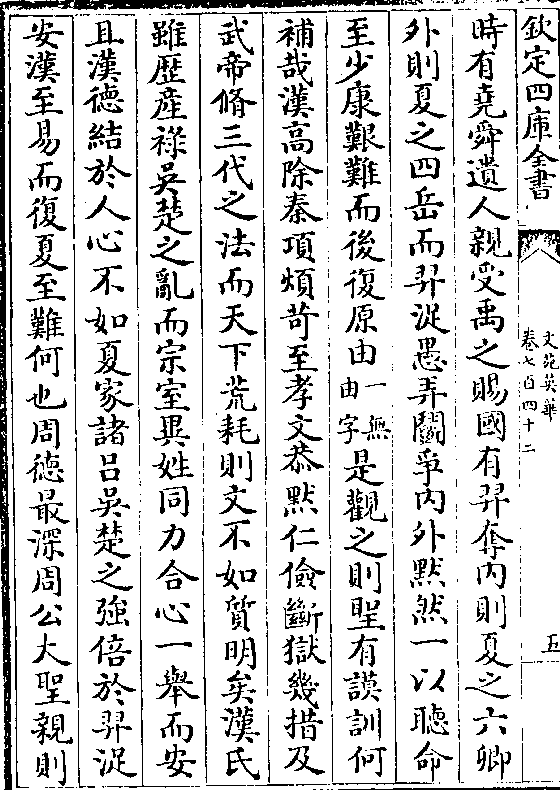 欽定四庫全書
文苑英華
卷七百四十二
五
時有堯舜遺人親受禹之賜國有羿奪内則夏之六卿
外則夏之四岳而羿浞愚弄鬭爭内外默然一以聽命
至少康艱難而後復原由一無由字是觀之則聖有謨訓何
補哉漢高除秦項煩苛至孝文恭默仁儉斷獄幾措及
武帝脩三代之法而天下荒耗則文不如質明矣漢氏
雖歴産祿吳楚之亂而宗室異姓同力合心一舉而安
且漢德結於人心不如夏家諸吕吳楚之強倍於羿浞
安漢至易而復夏至難何也周德最深周公大聖親則